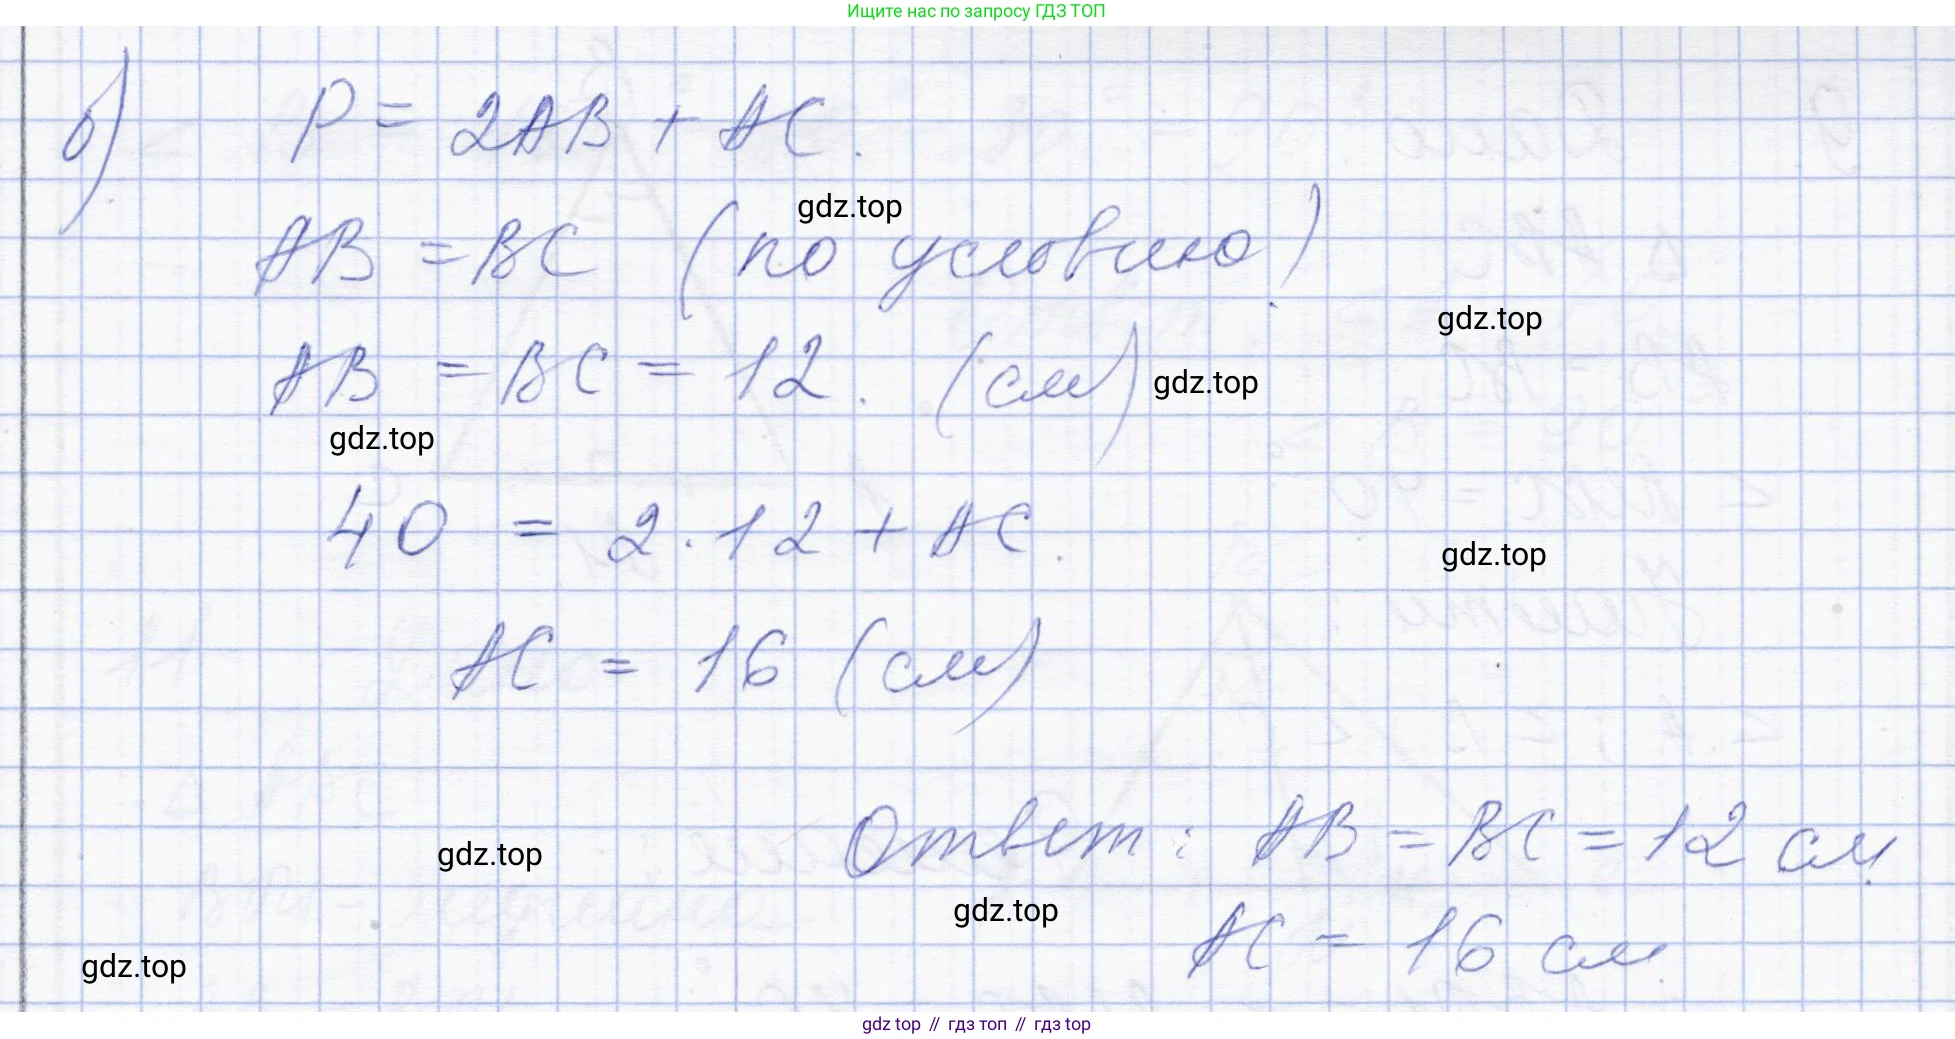 Ищите нас по запросу ГДЗ ТОП
б) P = 2AB + AC.
gdz.top
AB = BC (по условию).
gdz.top
AB = BC = 12. (см)
gdz.top
gdz.top
40 = 2 · 12 + AC.
gdz.top
AC = 16 (см)
Ответ: AB = BC = 12 см
gdz.top
gdz.top
AC = 16 см.
gdz.top
gdz top // гдз топ // гдз top